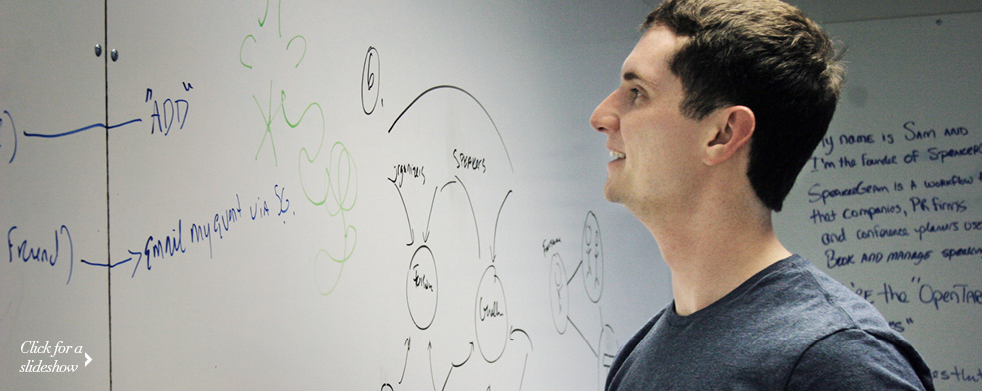 "ADD"
Friend)
Email my quant via SG.
6.
organizers
Speakers
Forum
My name is Sam and
I'm the founder of Speaker
SpeakerGram is a workflow
that companies, PR firms
and conference planners use
Book and manage speaking
the "OpenTab
Click for a
slideshow